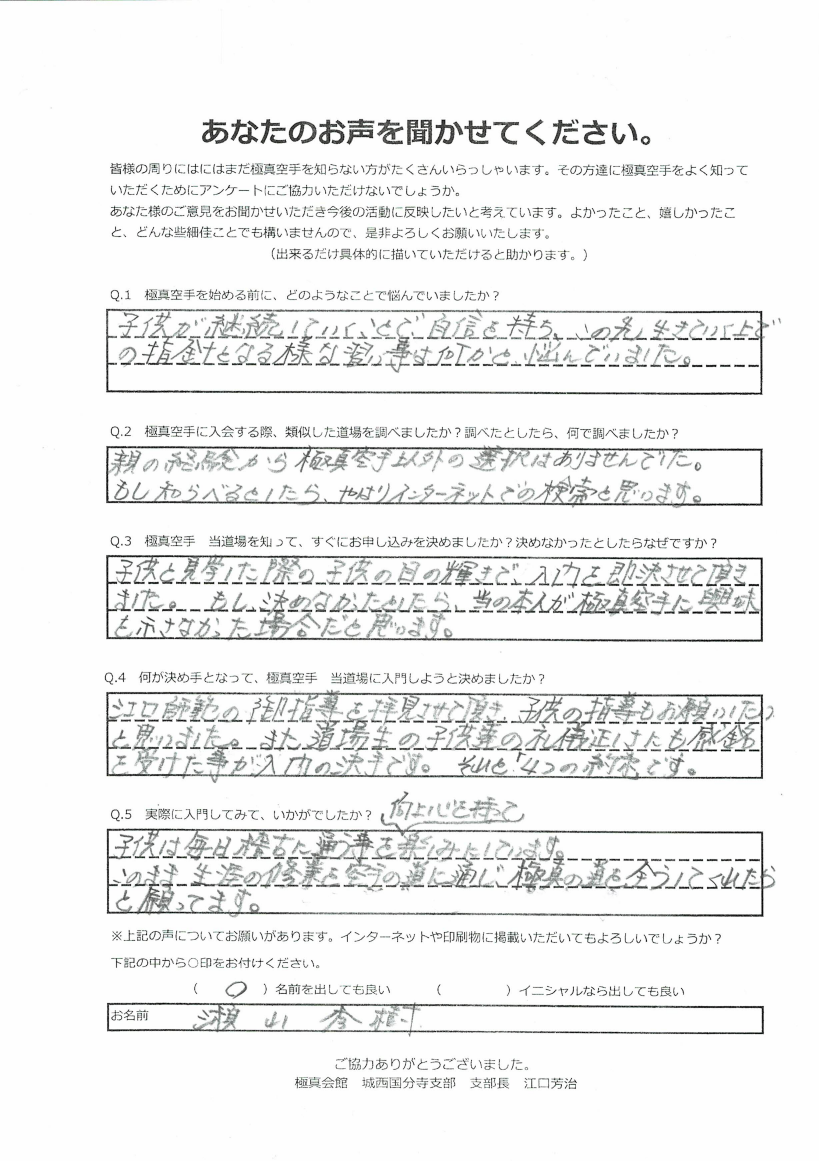 あなたのお声を聞かせてください。
皆様の周りにはにはまだ極真空手を知らない方がたくさんいらっしゃいます。その方達に極真空手をよく知って
いただくためにアンケートにご協力いただけないでしょうか。
あなた様のご意見をお聞かせいただき今後の活動に反映したいと考えています。よかったこと、嬉しかったこ
と、どんな些細佳ことでも構いませんので、是非よろしくお願いいたします。
（出来るだけ具体的に描いていただけると助かります。）
Q.1　極真空手を始める前に、どのようなことで悩んでいましたか？
子供が継続していくことで、自信を持ち、この先、生きていく上で
の指針となる様な習い事は何かと、悩んでいました。
Q.2　極真空手に入会する際、類似した道場を調べましたか？調べたとしたら、何で調べましたか？
親の経験から極真空手以外の選択はありませんでした。
もし知らべるとしたら、やはりインターネットでの検索と思います。
Q.3　極真空手　当道場を知って、すぐにお申し込みを決めましたか？決めなかったとしたらなぜですか？
子供と見学した際の子供の目の輝きで、入門を即決させて頂き
ました。もし、決めなかったとしたら、当の本人が極真空手に興味
を示さなかった場合だと思います。
Q.4　何が決め手となって、極真空手　当道場に入門しようと決めましたか？
江口師範の御指導を拝見させて頂き、子供の指導もお願いしたい
と思いました。また道場生の子供達の礼儀正しさにも感銘
を受けた事が入門の決手です。それと「4つの約束」です。
Q.5　実際に入門してみて、いかがでしたか？
向上心を持って
子供は毎日稽古に通う事を楽しみにしています。
このまま生涯の修業を空手の道に通じ、極真の道を全うしてくれたら
と願ってます。
※上記の声についてお願いがあります。インターネットや印刷物に掲載いただいてもよろしいでしょうか？
下記の中から○印をお付けください。
（　○　）名前を出しても良い　（　　）イニシャルなら出しても良い
お名前　瀬山　秀樹
ご協力ありがとうございました。
極真会館　城西国分寺支部　支部長　江口芳治